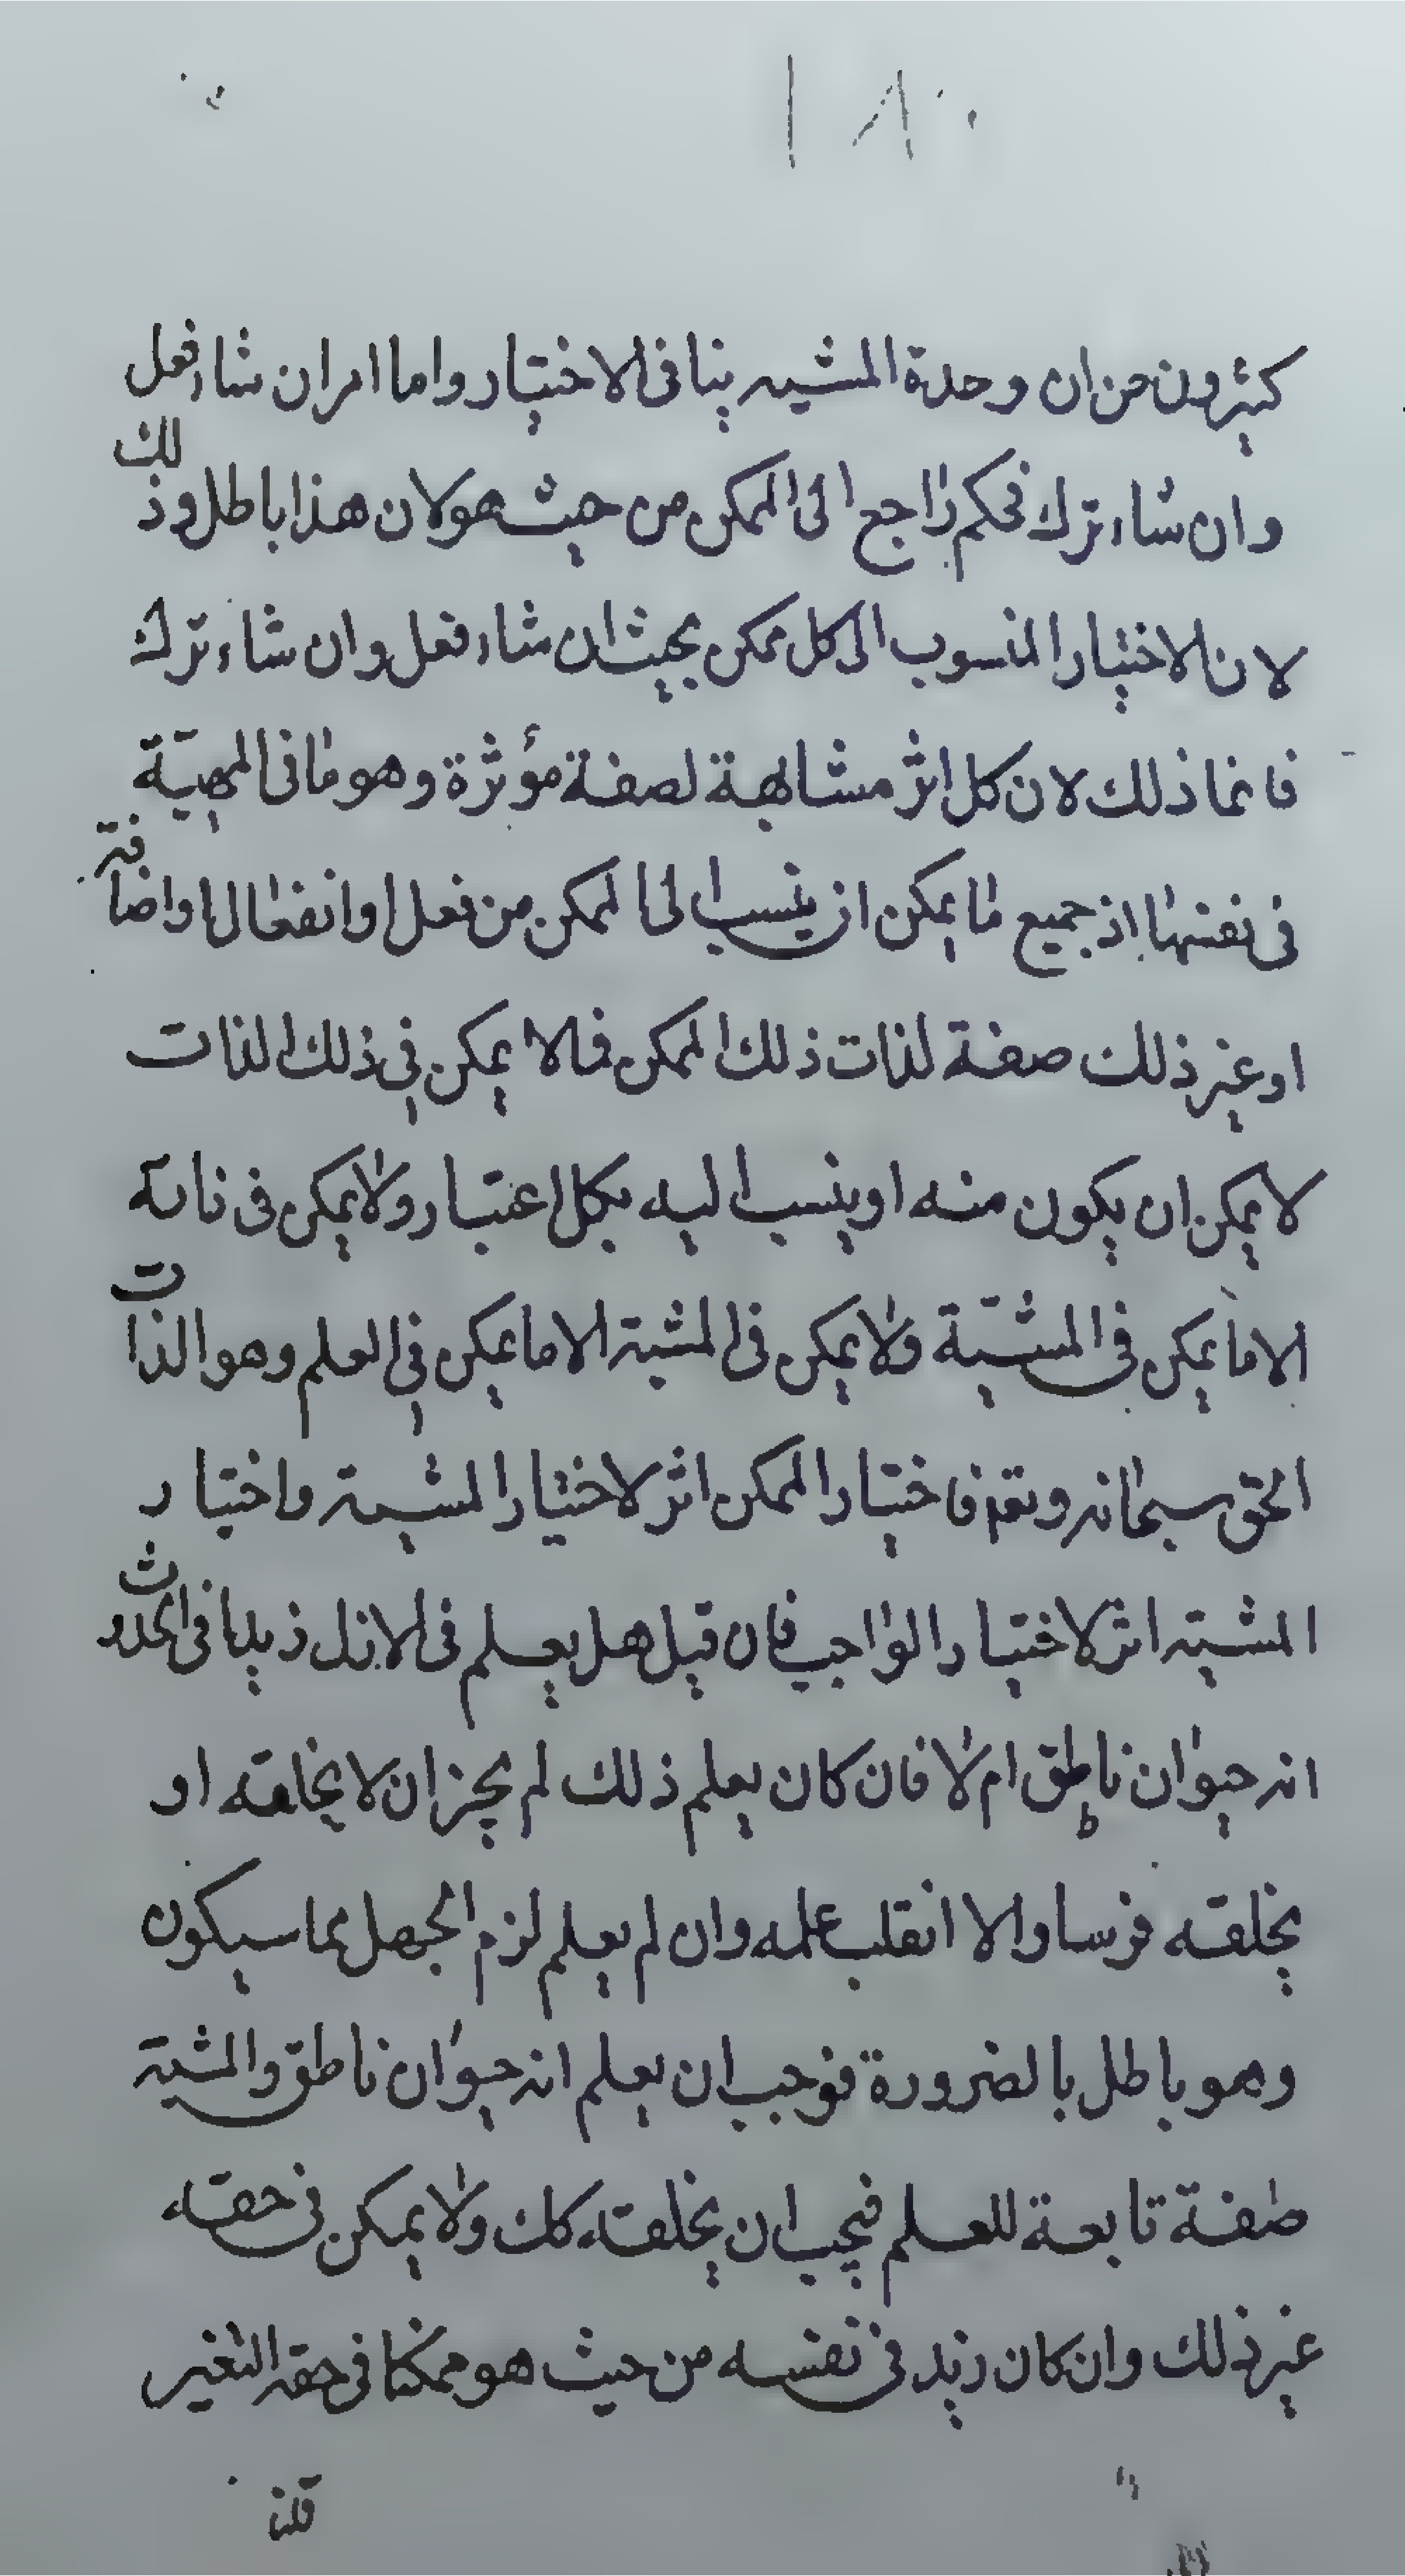 ١٨٠
كثيرون من ان وحدة المشيه ينافى الاختيار واما امر ان شاء فعل
وان شاء ترك فحكم راجع الى الممكن من حيث هو لان هذا باطل وذلك
لان الاختيار المنسوب الى كل ممكن بحيث ان شاء فعل وان شاء ترك
فانما ذلك لان كل اثر مشابهة لصفة مؤثرة وهو ما فى المهيّة
فى نفسها اذ جميع ما يمكن ان ينسب الى الممكن من فعل او انفعال او اضافة
او غير ذلك صفة لذات ذلك الممكن فالا يمكن فى ذلك الذات
لا يمكن ان يكون منه او ينسب اليه بكل اعتبار ولا يمكن فى
الا ما يمكن فى المشيّة ولا يمكن فى المشية الا ما يمكن فى العلم وهو الذات
الحق سبحانه وتعم فاختيار الممكن اثر لاختيار المشية واختيار
المشية اثر لاختيار الواجب فان قيل هل يعلم فى الازل زيدا فى الحدث
انه حيوان ناطق ام لا فان كان يعلم ذلك لم يجز ان لا يخلقه او
يخلقه فرسا والا انقلب علمه وان لم يعلم لزم الجهل بما سيكون
وهو باطل بالضرورة فوجب ان يعلم انه حيوان ناطق والمشية
صفة تابعة للعلم فيجب ان يخلقه كك ولا يمكن فى حقه
غير ذلك وان كان زيد فى نفسه من حيث هو ممكنا فى حقه التغير
قلنا